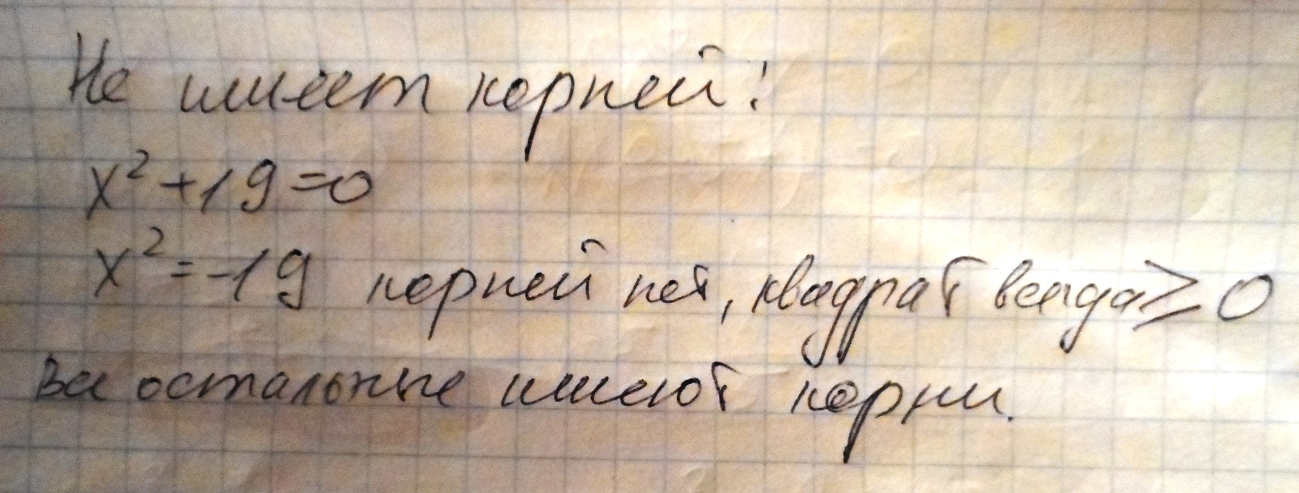 Не имеет корней:
x²+19=0
x²=-19 корней нет, квадрат всегда ≥ 0
Все остальные имеют корни.